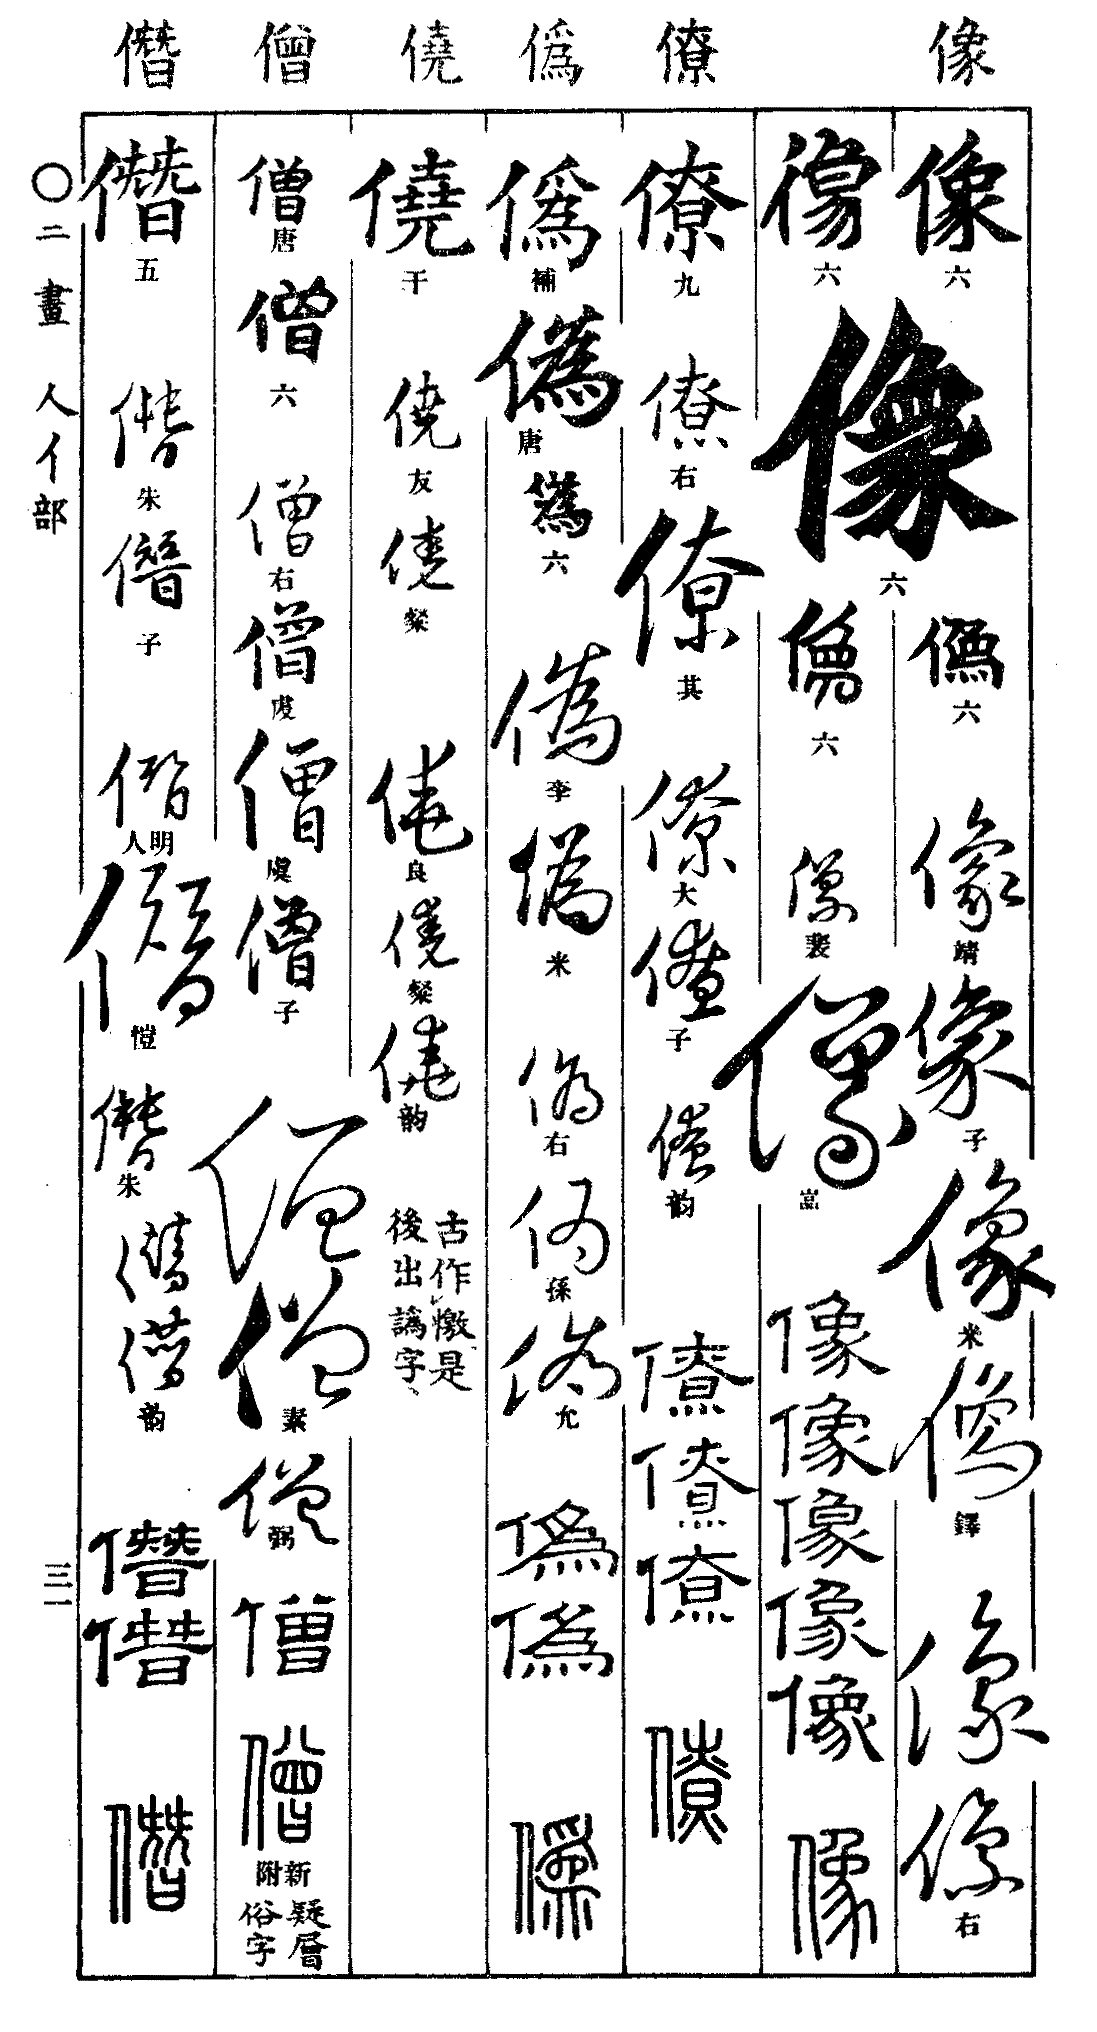 像 僚 僞 僥 僧 僭
像 六
像 六
像 六
像 靖
像 子
像 米
像 鐸
像
像 右
像 六
像 六
像 裴
像
像
像
像
像
像
像
僚 九
僚 右
僚 其
僚 大
僚 子
僚 韵
僚
僚
僚
僚
僞 補
僞 唐
僞 六
僞 李
僞 米
僞 右
僞 孫
僞 允
僞
僞
僞
僥 干
僥 友
僥 粲
僥 良
僥 粲
僥 韵
古作憿是
後出譌字
僧 唐
僧 六
僧 右
僧 虔
僧 虞
僧 子
僧
僧 素
僧 弼
僧
僧
新附
疑層
俗字
僭 五
僭 朱
僭 子
僭 明人
僭 愷
僭 朱
僭
僭 韵
僭
僭
僭
〇二畫 人亻部 三一